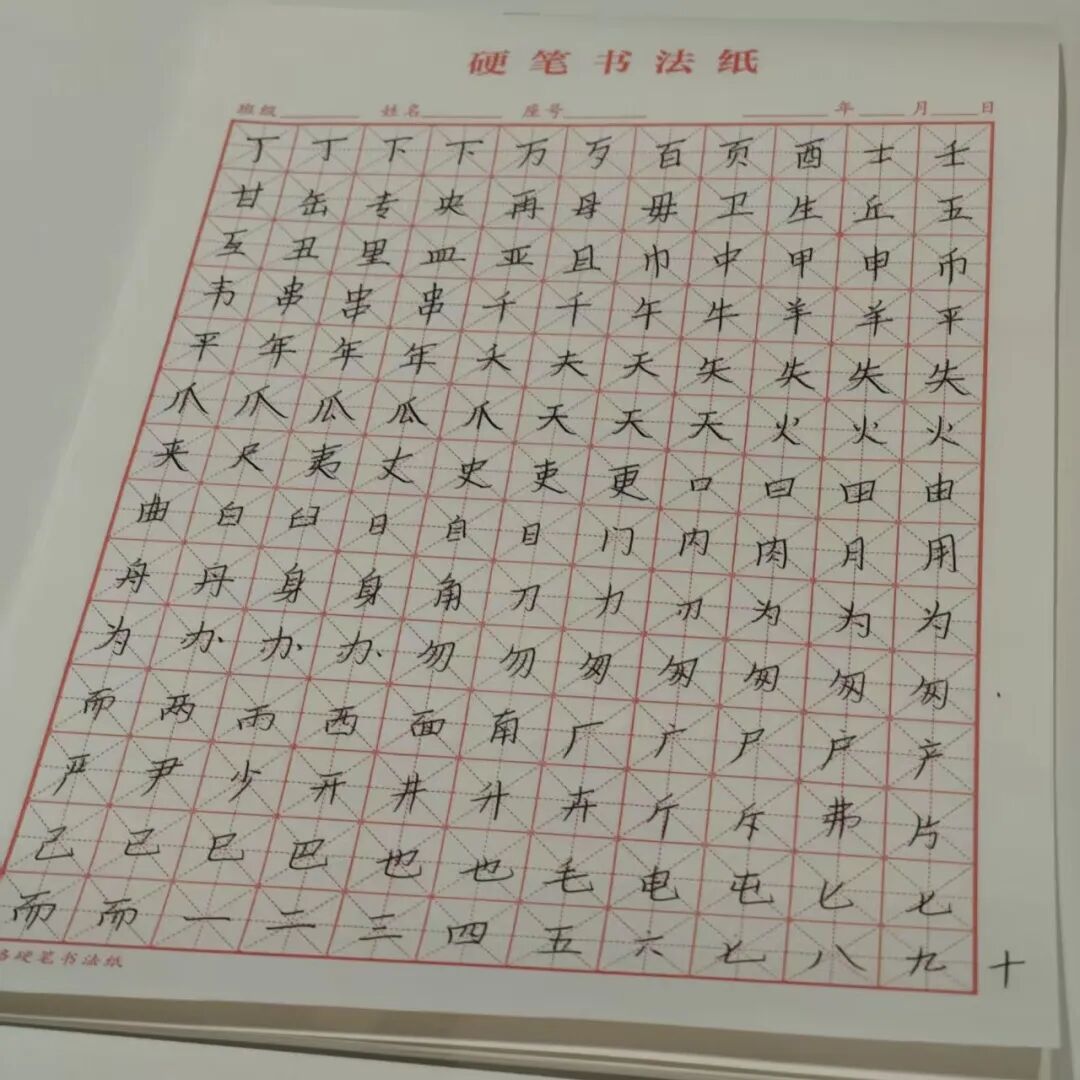 硬笔书法纸
班级 姓名 座号 年 月 日
丁丁下下万歹百页酉士壬
甘缶专央再母毋卫生丘五
互丑里皿亚且巾中甲申币
韦串串串千千午牛羊羊平
平年年年夭夫天矢失失失
爪爪瓜瓜爪天天天火火火
夹尺夷丈史吏更口曰田由
曲白臼日自目门内肉月用
舟丹身身角刀力刃为为为
为办办办勿勿匆匆匆匆匆
而两雨西面南厂广尸尸产
严尹少开井升卉斤斥弗片
己已巳巴也也毛电屯匕七
而而一二三四五六七八九十
格硬笔书法纸